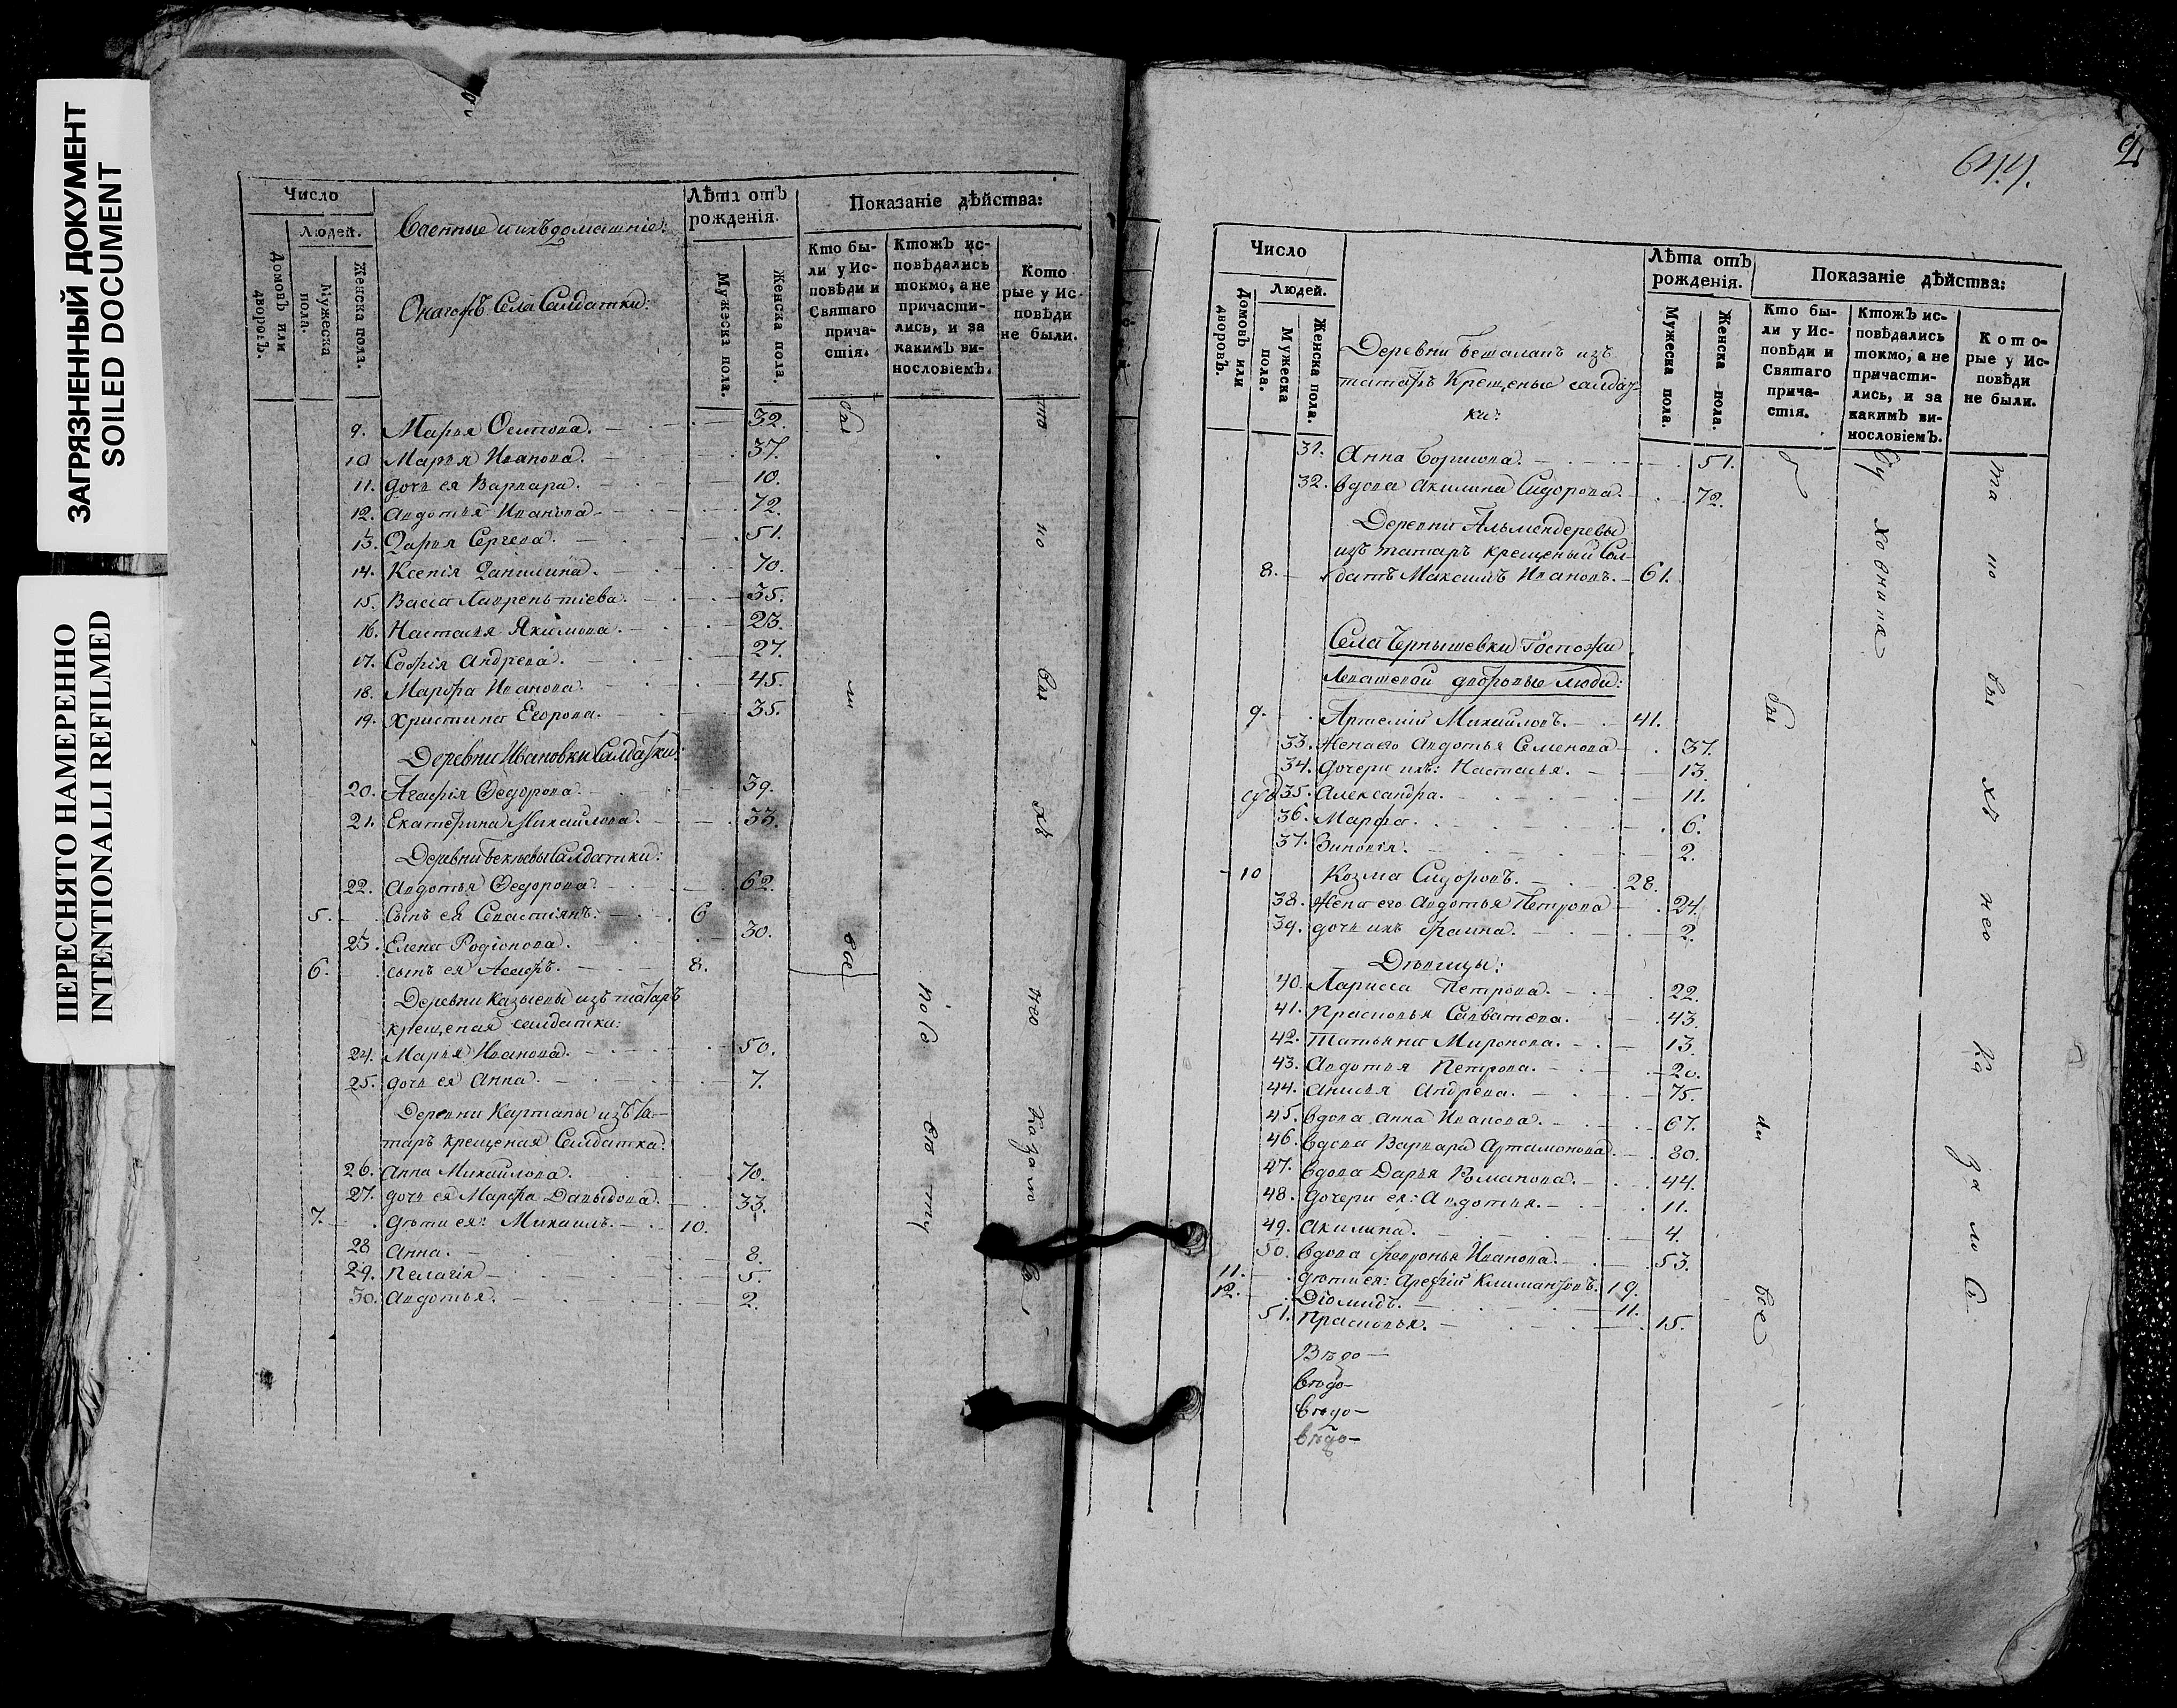 ЗАГРЯЗНЕННЫЙ ДОКУМЕНТ
SOILED DOCUMENT
ПЕРЕСНЯТО НАМЕРЕННО
INTENTIONALLI REFILMED
Число
Людей.
Домовъ или дворовъ.
Мужеска пола.
Женска пола.
Военные и ихъ домашніе:
Онагожъ Села Салдатки:
Лѣта отъ рожденія.
Мужеска пола.
Женска пола.
Показаніе дѣйства:
Кто были у Исповѣди и Святаго причастія.
Ктожъ исповѣдались токмо, а не причастились, и за какимъ винословіемъ.
Которые у Исповѣди не были.
9. Марья Осипова. 32.
10 Марья Иванова. 37.
11. Дочь ея Варвара. 10.
12. Авдотья Иванова 72.
13. Дарья Сергева. 51.
14. Ксенія Данилина. 70.
15. Васса Лаврентіева. 35.
16. Наталья Якимова. 23.
17. Софія Андрева. 27.
18. Марфа Иванова. 45.
19. Христина Егорова. 35.
Деревни Ивановки Салдатки:
20. Агафія Федорова. 39.
21. Екатерина Михайлова. 33.
Деревни Салдатки:
22. Авдотья Федорова. 62.
5. Сынъ ея Севастіянъ. 6
23. Елена Родіонова. 30.
6. сынъ ея 8.
Деревни Казыевы изъ татаръ
крещеная салдатка:
24. Марья Иванова. 50.
25. дочь ея Анна. 7.
Деревни изъ та-
таръ крещеная Салдатка:
26. Анна Михайлова. 70.
27. дочь ея Марфа Давыдова. 33.
7. дѣти ея: Михаилъ. 10.
28 Анна. 8.
29. Пелагія 5.
30. Авдотья. 2.
бы
ли
все
по
ихъ
нео
казало
644.
Число
Людей.
Домовъ или дворовъ.
Мужеска пола.
Женска пола.
Деревни изъ
татаръ Крещеные салдат-
ки:
Лѣта отъ рожденія.
Мужеска пола.
Женска пола.
Показаніе дѣйства:
Кто были у Исповѣди и Святаго причастія.
Ктожъ исповѣдались токмо, а не причастились, и за какимъ винословіемъ.
Которые у Исповѣди не были.
31. Анна Борисова. 51.
32. вдова Акилина Сидорова. 72.
Деревни Альмендеревы
изъ татаръ крещеный Сал-
8. датъ Максимъ Ивановъ. 61.
Села Чернышевки Госпожи
дворовые люди:
9. Артемій Михайловъ. 41.
33. Жена его Авдотья Семенова 37.
34. Дочери ихъ: Наталья. 13.
35. Александра. 11.
36. Марфа. 6.
37. Зиновія. 2.
10 Козма Сидоровъ. 28.
38. Жена его Авдотья Петрова 24.
39. дочь ихъ Фаина. 2.
Дѣвицы:
40. Ларисса Петрова. 22.
41. Прасковья 43.
42. Татьяна Миронова. 13.
43. Авдотья Петрова. 20.
44. Анисья Андрева. 75.
45. вдова Анна Иванова. 67.
46. вдова Варвара Артамонова. 80.
47. вдова Дарья Романова. 44.
48. Дочери ея: Авдотья. 11.
49. Акилина. 4.
50. вдова Февронья Иванова. 53.
11. дѣти ея: Арефій 19.
12. Діомидъ. 11.
51. Прасковья. 15.
Вѣдо—
вѣдо—
вѣдо—
вѣдо—
бы
ли
все
по
ихъ
нео
ка
за
ло